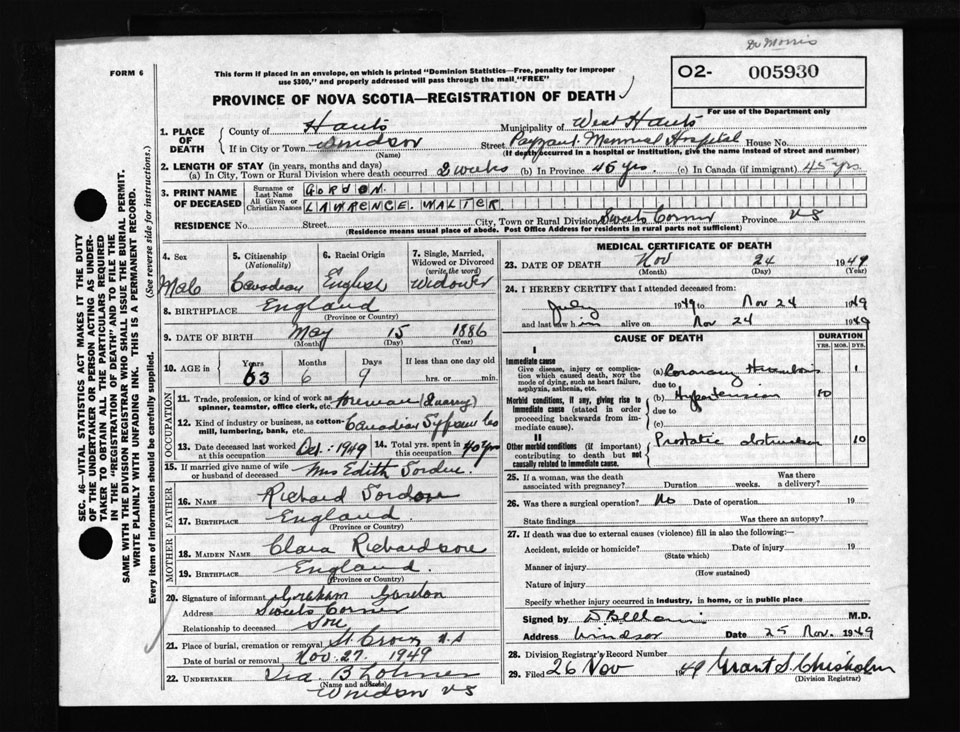 Dr Morris
FORM 6
This form if placed in an envelope, on which is printed "Dominion Statistics—Free, penalty for improper
use $300," and properly addressed will pass through the mail "FREE"
PROVINCE OF NOVA SCOTIA—REGISTRATION OF DEATH
O2- 005930
For use of the Department only
1. PLACE OF DEATH { County of Hants Municipality of West Hants
If in City or Town Windsor (Name) Street Payzant Memorial Hospital House No.
(If death occurred in a hospital or institution, give the name instead of street and number)
2. LENGTH OF STAY (in years, months and days)
(a) In City, Town or Rural Division where death occurred 2 weeks (b) In Province 45 yrs. (c) In Canada (if immigrant) 45 yrs
3. PRINT NAME OF DECEASED { Surname or Last Name GORDON.
All Given or Christian Names LAWRENCE. WALTER
RESIDENCE No. Street City, Town or Rural Division Sweets Corner Province NS
(Residence means usual place of abode. Post Office Address for residents in rural parts not sufficient)
4. Sex Male
5. Citizenship (Nationality) Canadian
6. Racial Origin English
7. Single, Married, Widowed or Divorced (write the word) Widower
8. BIRTHPLACE England
(Province or Country)
9. DATE OF BIRTH May 15 1886
(Month) (Day) (Year)
10. AGE in { Years 63 Months 6 Days 9 If less than one day old
hrs. or min.
OCCUPATION
11. Trade, profession, or kind of work as spinner, teamster, office clerk, etc. foreman (quarry)
12. Kind of industry or business, as cotton-mill, lumbering, bank, etc. Canadian Gypsum Co
13. Date deceased last worked at this occupation Oct. 1949 14. Total yrs. spent in this occupation 40 yrs
15. If married give name of wife or husband of deceased Mrs Edith Gordon
FATHER
16. NAME Richard Gordon
17. BIRTHPLACE England
(Province or Country)
MOTHER
18. MAIDEN NAME Clara Richardson
19. BIRTHPLACE England.
(Province or Country)
20. Signature of informant Graham Gordon
Address Sweets Corner
Relationship to deceased Son
21. Place of burial, cremation or removal St. Croix N.S
Date of burial or removal Nov. 27. 1949
22. UNDERTAKER
(Name and address)
Windsor NS
MEDICAL CERTIFICATE OF DEATH
23. DATE OF DEATH Nov 24 1949
(Month) (Day) (Year)
24. I HEREBY CERTIFY that I attended deceased from:
July 1949 to Nov 24 1949
and last saw him alive on Nov 24 1949
CAUSE OF DEATH DURATION
YRS. MOS. DYS.
I
Immediate cause
Give disease, injury or complication which caused death, not the mode of dying, such as heart failure, asphyxia, asthenia, etc.
(a) Coronary Thrombosis 1
due to
Morbid conditions, if any, giving rise to immediate cause (stated in order proceeding backwards from immediate cause).
(b) Hypertension 10
due to
(c)
II
Other morbid conditions (if important) contributing to death but not causally related to immediate cause.
Prostatic obstruction 10
25. If a woman, was the death associated with pregnancy? Duration weeks. Was there a delivery?
26. Was there a surgical operation? No Date of operation 19
State findings Was there an autopsy?
27. If death was due to external causes (violence) fill in also the following:—
Accident, suicide or homicide? Date of injury 19
(State which)
Manner of injury
(How sustained)
Nature of injury
Specify whether injury occurred in industry, in home, or in public place
Signed by M.D.
Address Windsor Date 25 Nov. 1949
28. Division Registrar's Record Number
29. Filed 26 Nov 1949 Grant S. Chisholm
(Division Registrar)
SEC. 46—VITAL STATISTICS ACT MAKES IT THE DUTY
OF THE UNDERTAKER OR PERSON ACTING AS UNDER-
TAKER TO OBTAIN ALL THE PARTICULARS REQUIRED
IN THE "REGISTRATION OF DEATH" AND TO FILE THE
SAME WITH THE DIVISION REGISTRAR WHO SHALL ISSUE THE BURIAL PERMIT.
WRITE PLAINLY WITH UNFADING INK. THIS IS A PERMANENT RECORD.
Every item of information should be carefully supplied. (See reverse side for instructions.)